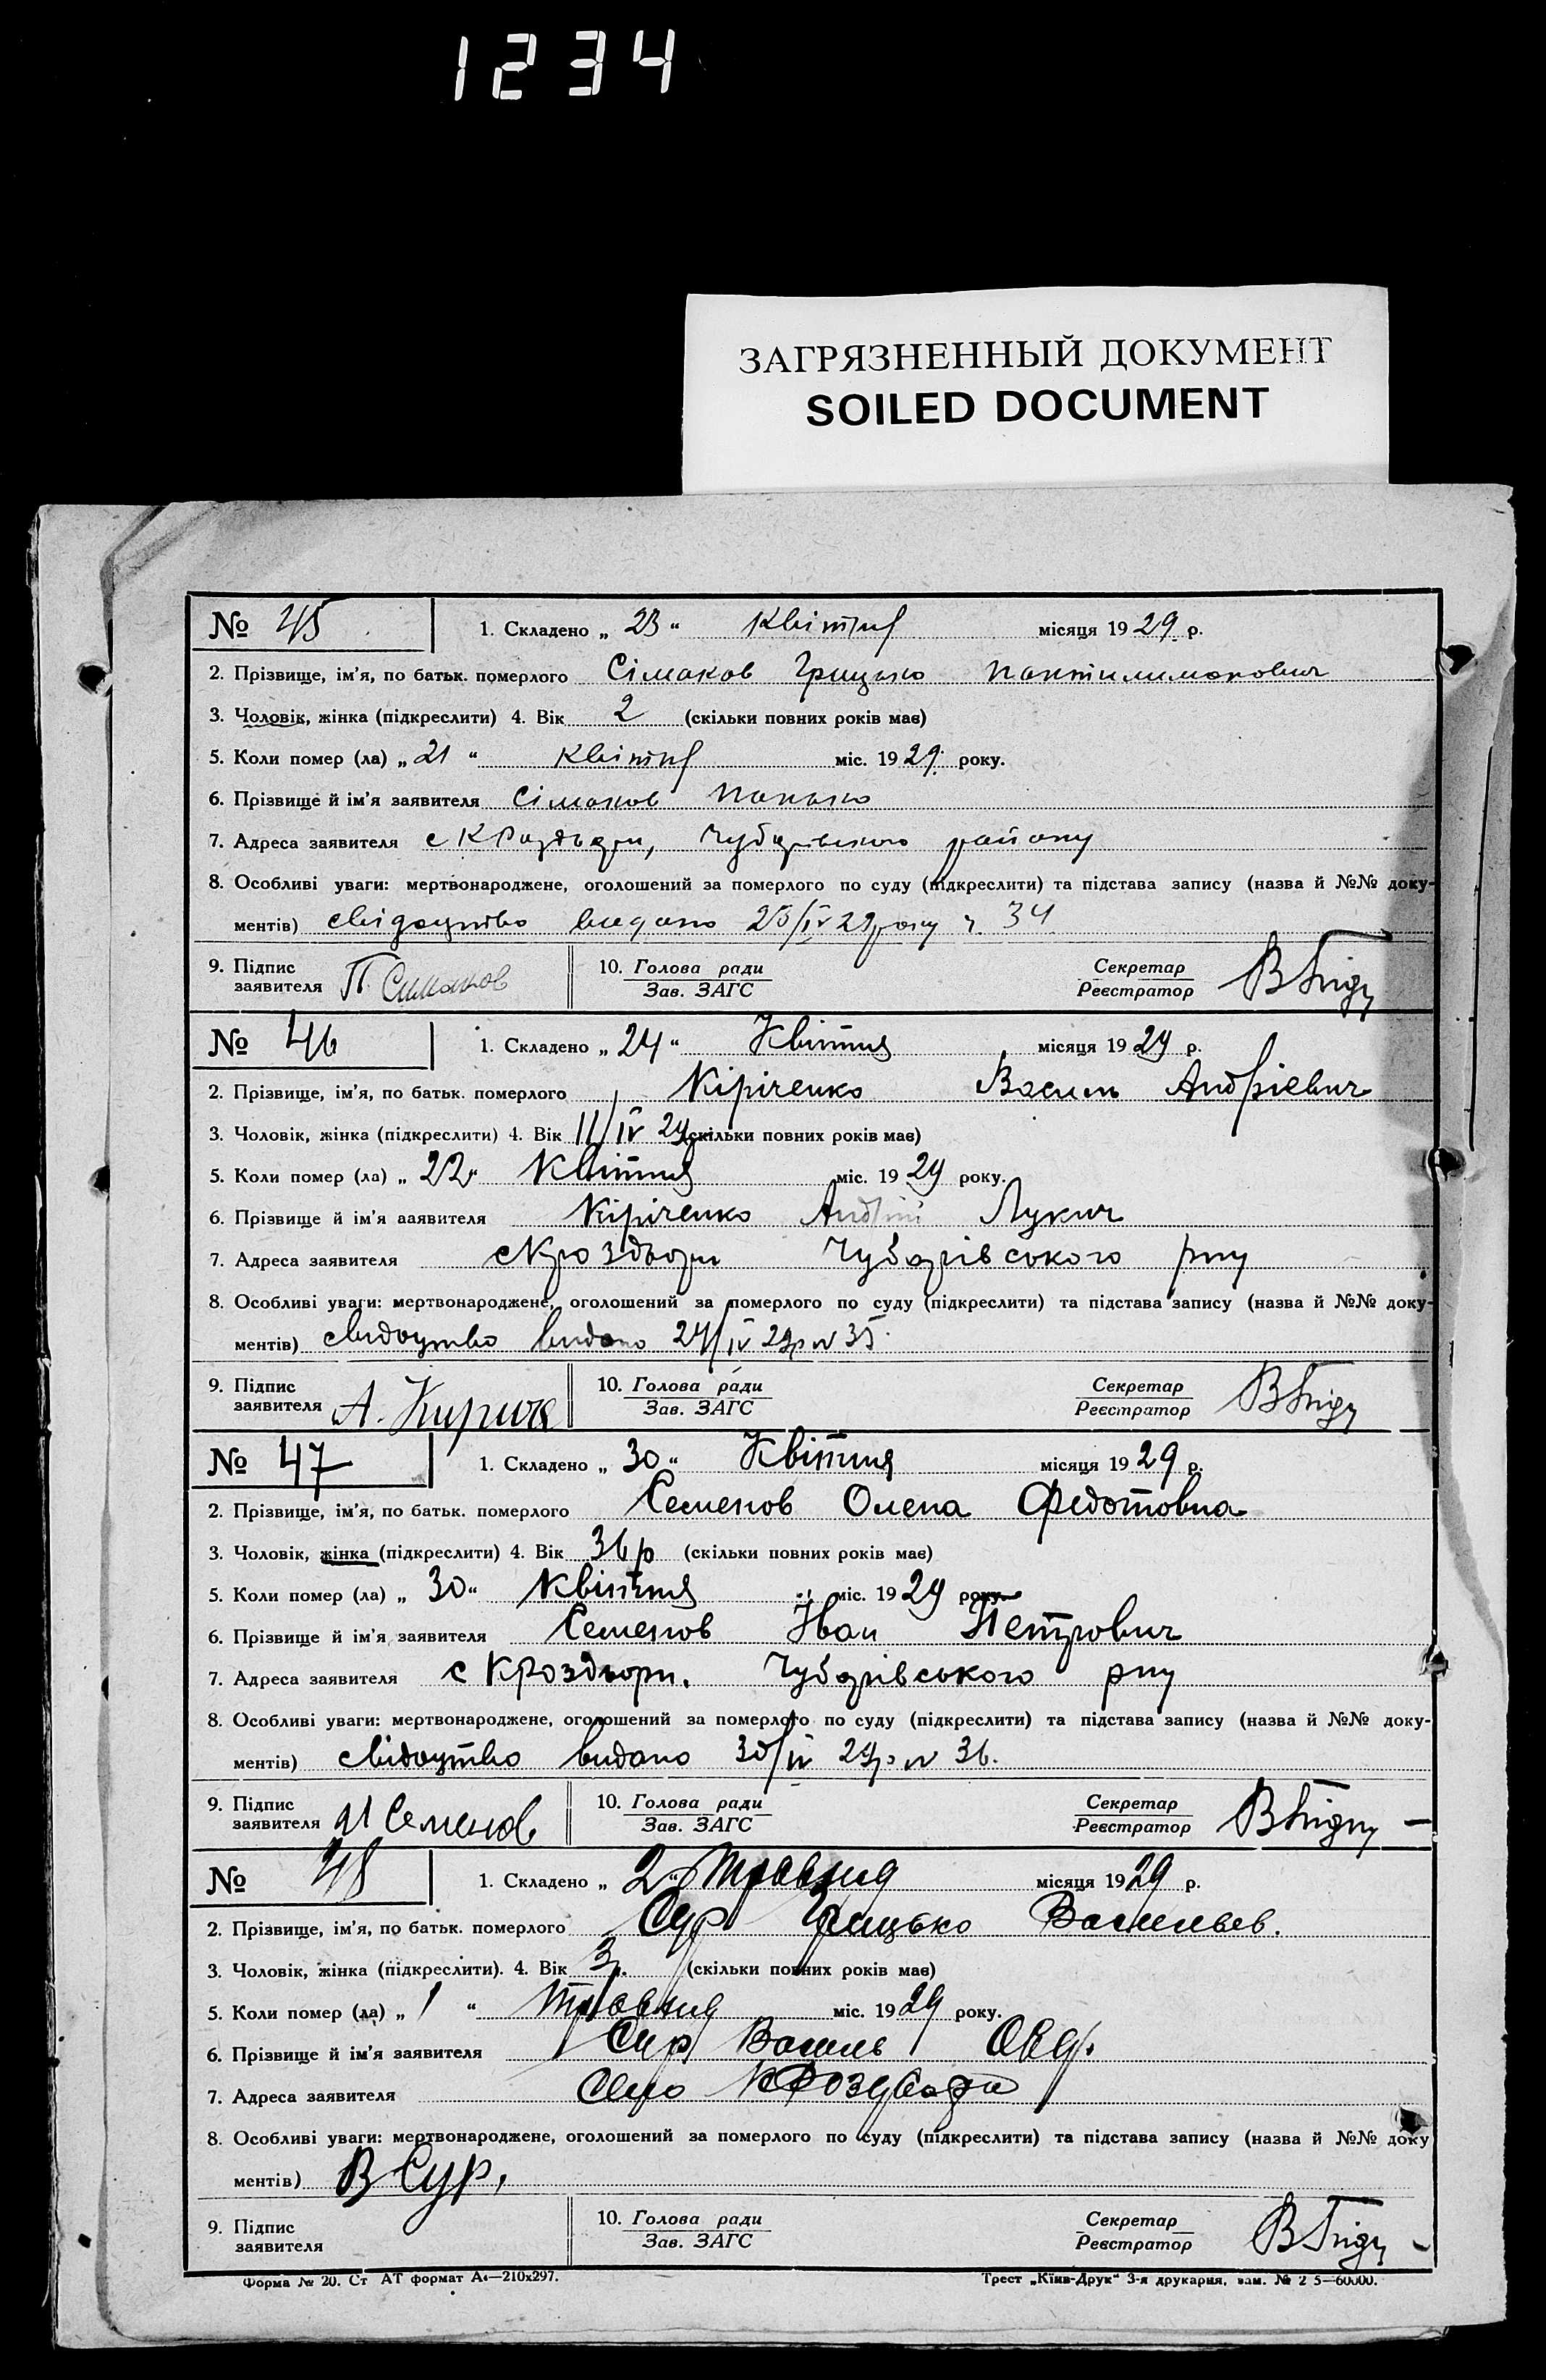 1234
ЗАГРЯЗНЕННЫЙ ДОКУМЕНТ
SOILED DOCUMENT
№ 45 1. Складено „ 23 “ Квітня місяця 1929 р.
2. Прізвище, ім'я, по батьк. померлого Сімаков Грицько Пантилимонович
3. Чоловік, жінка (підкреслити) 4. Вік 2 (скільки повних років має)
5. Коли помер (ла) „ 21 “ Квітня міс. 1929 року.
6. Прізвище й ім'я заявителя Сімаков Панько
7. Адреса заявителя с К Роздори, Чубарівського району
8. Особливі уваги: мертвонароджене, оголошений за померлого по суду (підкреслити) та підстава запису (назва й №№ доку-
ментів) свідоцтво видано 23/IV 29 року ч. 34
9. Підпис заявителя П. Симаков 10. Голова ради Зав. ЗАГС Секретар Реєстратор
№ 46 1. Складено „ 24 “ Квітня місяця 1929 р.
2. Прізвище, ім'я, по батьк. померлого Кіріченко Василь Андрієвич
3. Чоловік, жінка (підкреслити) 4. Вік 11/IV 29р (скільки повних років має)
5. Коли помер (ла) „ 22 “ Квітня міс. 1929 року.
6. Прізвище й ім'я заявителя Кіріченко Андрій Лукич
7. Адреса заявителя с Кроздори Чубарівського р-ну
8. Особливі уваги: мертвонароджене, оголошений за померлого по суду (підкреслити) та підстава запису (назва й №№ доку-
ментів) свидоцтво видано 24/IV 29р № 35.
9. Підпис заявителя А. Кирич 10. Голова ради Зав. ЗАГС Секретар Реєстратор
№ 47 1. Складено „ 30 “ Квітня місяця 1929 р.
2. Прізвище, ім'я, по батьк. померлого Семенов Олена Федотовна
3. Чоловік, жінка (підкреслити) 4. Вік 36 р (скільки повних років має)
5. Коли помер (ла) „ 30 “ Квітня міс. 1929 року.
6. Прізвище й ім'я заявителя Семенов Іван Петрович
7. Адреса заявителя с Кроздори. Чубарівського рну
8. Особливі уваги: мертвонароджене, оголошений за померлого по суду (підкреслити) та підстава запису (назва й №№ доку-
ментів) свідоцтво видано 30/IV 29р № 36.
9. Підпис заявителя И Семенов 10. Голова ради Зав. ЗАГС Секретар Реєстратор
№ 48 1. Складено „ 2 “ травня місяця 1929 р.
2. Прізвище, ім'я, по батьк. померлого Сур Грицько Васильев.
3. Чоловік, жінка (підкреслити). 4. Вік 3р. (скільки повних років має)
5. Коли помер (ла) „ 1 “ травня міс. 1929 року.
6. Прізвище й ім'я заявителя Сур Василь
7. Адреса заявителя Село
8. Особливі уваги: мертвонароджене, оголошений за померлого по суду (підкреслити) та підстава запису (назва й №№ доку
ментів) В Сур.
9. Підпис заявителя 10. Голова ради Зав. ЗАГС Секретар Реєстратор
Форма № 20. Ст АТ формат А4—210х297. Трест „Київ-Друк“ 3-я друкарня, зам. № 2 5—60000.